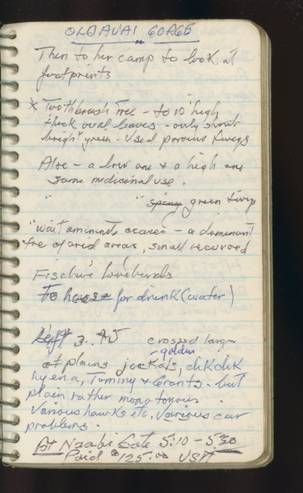 OLDAVAI GORGE
Then to her camp to look at
footprints
* Toothbrush Tree - to 10' high
thick oval leaves - only shrub
bright green - used porous twigs
Aloe - a low one & a high one
same medicinal use.
" green twig
"wait a minute acacia" - a dominant
tree of arid areas, small recurved
Fischer's lovebirds
To house for drink (water)
Left 3:45 crossed large
- golden
of plains jackals, dikdik
hyena, Tommy & Grants - but
plain rather monotonous.
Various hawks etc. Various car
problems.
At Naabi Gate 5:10 - 5:30
Paid $125.00 USA